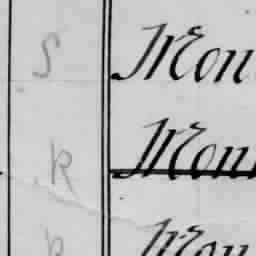 S Mon
k Mon
k Mon